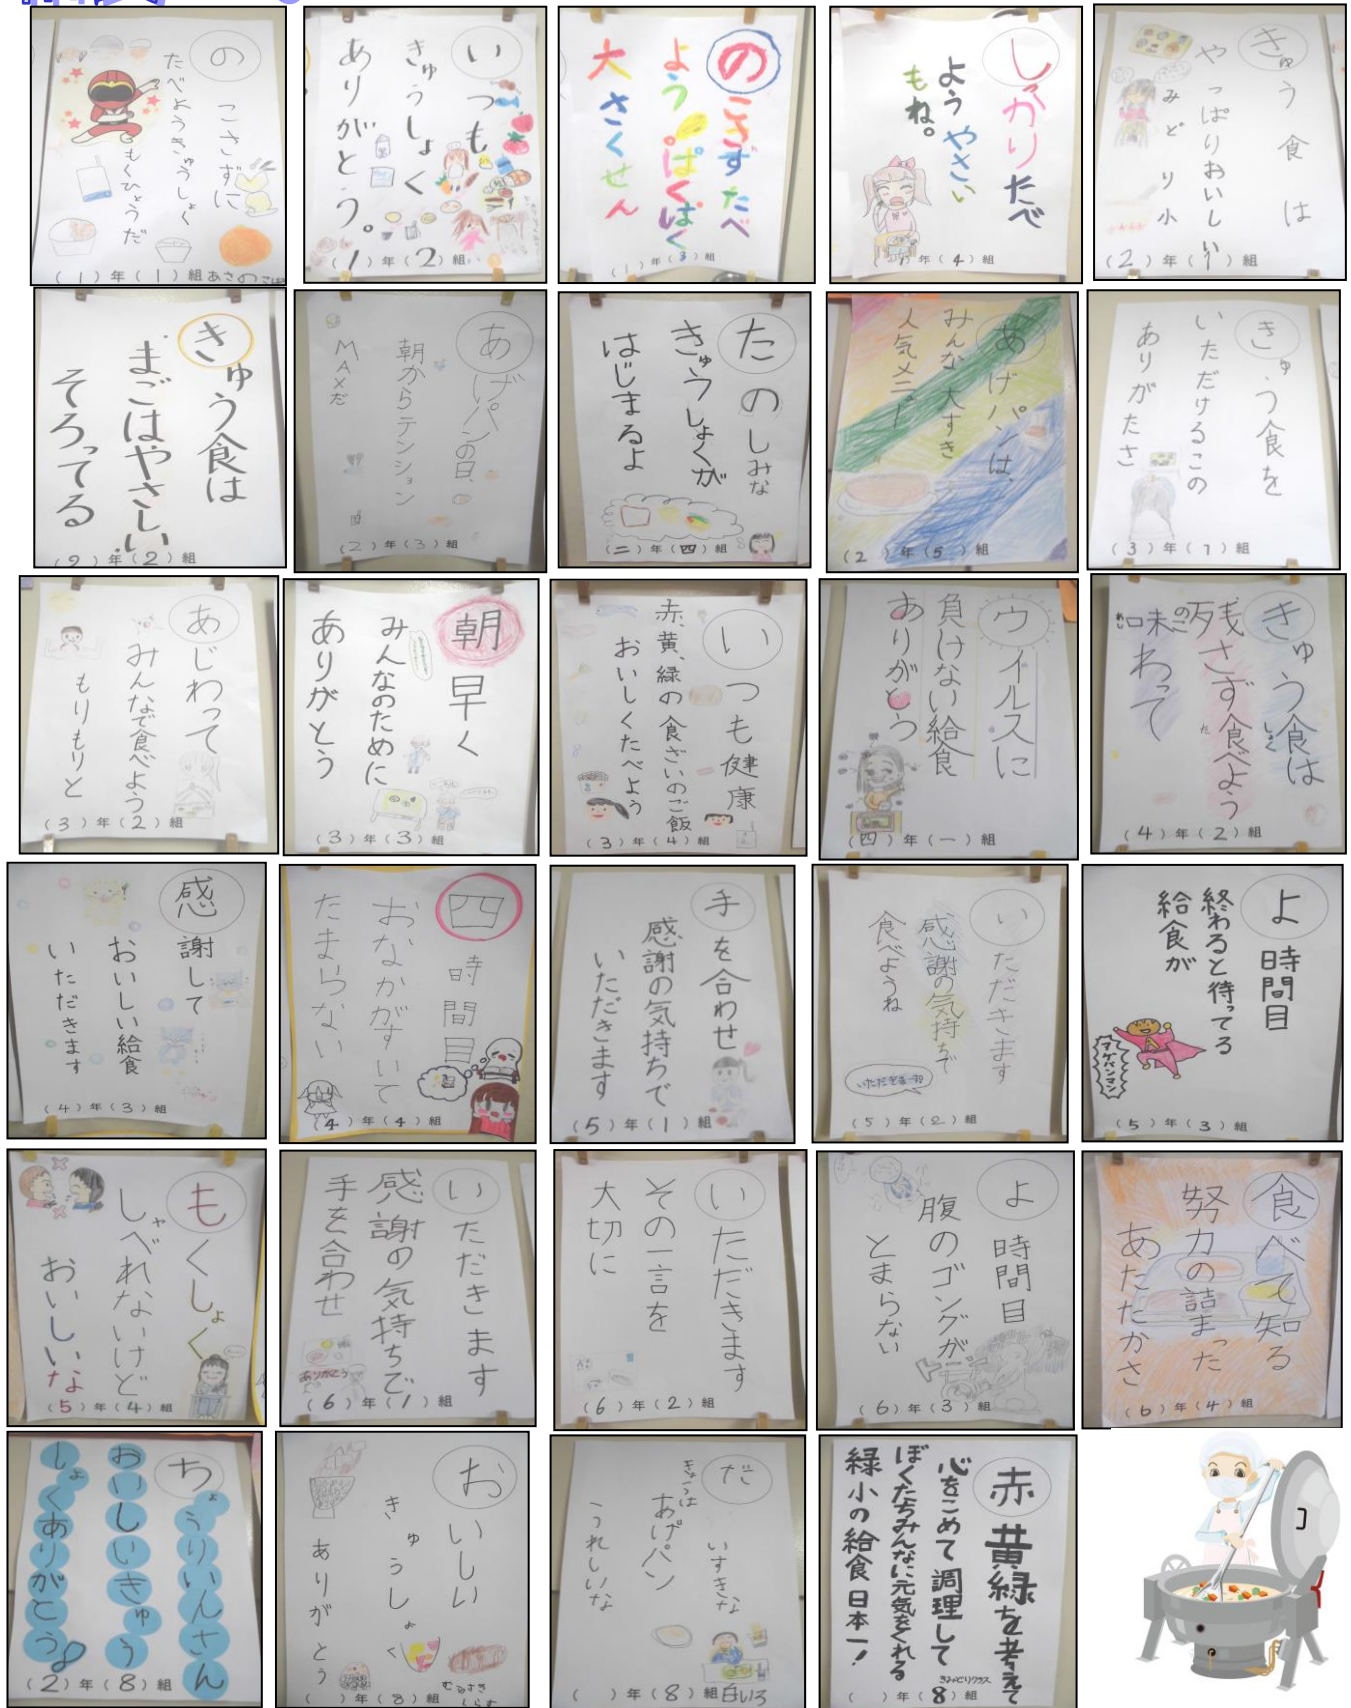 のこさずに
たべようきゅうしょく
もくひょうだ
(1)年(1)組
いつも
きゅうしょく
ありがとう。
(1)年(2)組
のこさずたべ
ようぱくぱく
大さくせん
(1)年(3)組
しっかりたべ
ようやさい
もね。
(1)年(4)組
きゅう食は
やっぱりおいしい
みどり小
(2)年(1)組
きゅう食は
まごはやさしい
そろってる
(2)年(2)組
あげパンの日、
朝からテンション
MAXだ
(2)年(3)組
たのしみな
きゅうしょくが
はじまるよ
(二)年(四)組
あげパンは、
みんな大すき
人気メニュー
(2)年(5)組
きゅう食を
いただけるこの
ありがたさ
(3)年(1)組
あじわって
みんなで食べよう
もりもりと
(3)年(2)組
朝早く
みんなのために
ありがとう
(3)年(3)組
いつも健康
赤、黄、緑の食ざいのご飯
おいしくたべよう
(3)年(4)組
ウイルスに
負けない給食
ありがとう
(四)年(一)組
きゅう食は
残さず食べよう
味わって
(4)年(2)組
感謝して
おいしい給食
いただきます
(4)年(3)組
四時間目
おなかがすいて
たまらない
(4)年(4)組
手を合わせ
感謝の気持ちで
いただきます
(5)年(1)組
いただきます
感謝の気持ちで
食べようね
(5)年(2)組
よ時間目
終わると待ってる
給食が
アゲパンマン
(5)年(3)組
もくしょく
しゃべれないけど
おいしいな
(5)年(4)組
いただきます
感謝の気持ちで
手を合わせ
ありがとう
(6)年(1)組
いただきます
その一言を
大切に
(6)年(2)組
よ時間目
腹のゴングが
とまらない
(6)年(3)組
食べて知る
努力の詰まった
あたたかさ
(6)年(4)組
ちょうりいんさん
おいしいきゅう
しょくありがとう
(2)年(8)組
おいしい
きゅうしょく
ありがとう
( )年(8)組
だいすきな
きょうはあげパン
うれしいな
( )年(8)組
赤黄緑を考えて
心をこめて調理して
ぼくたちみんなに元気をくれる
緑小の給食日本一!
( )年(8)組